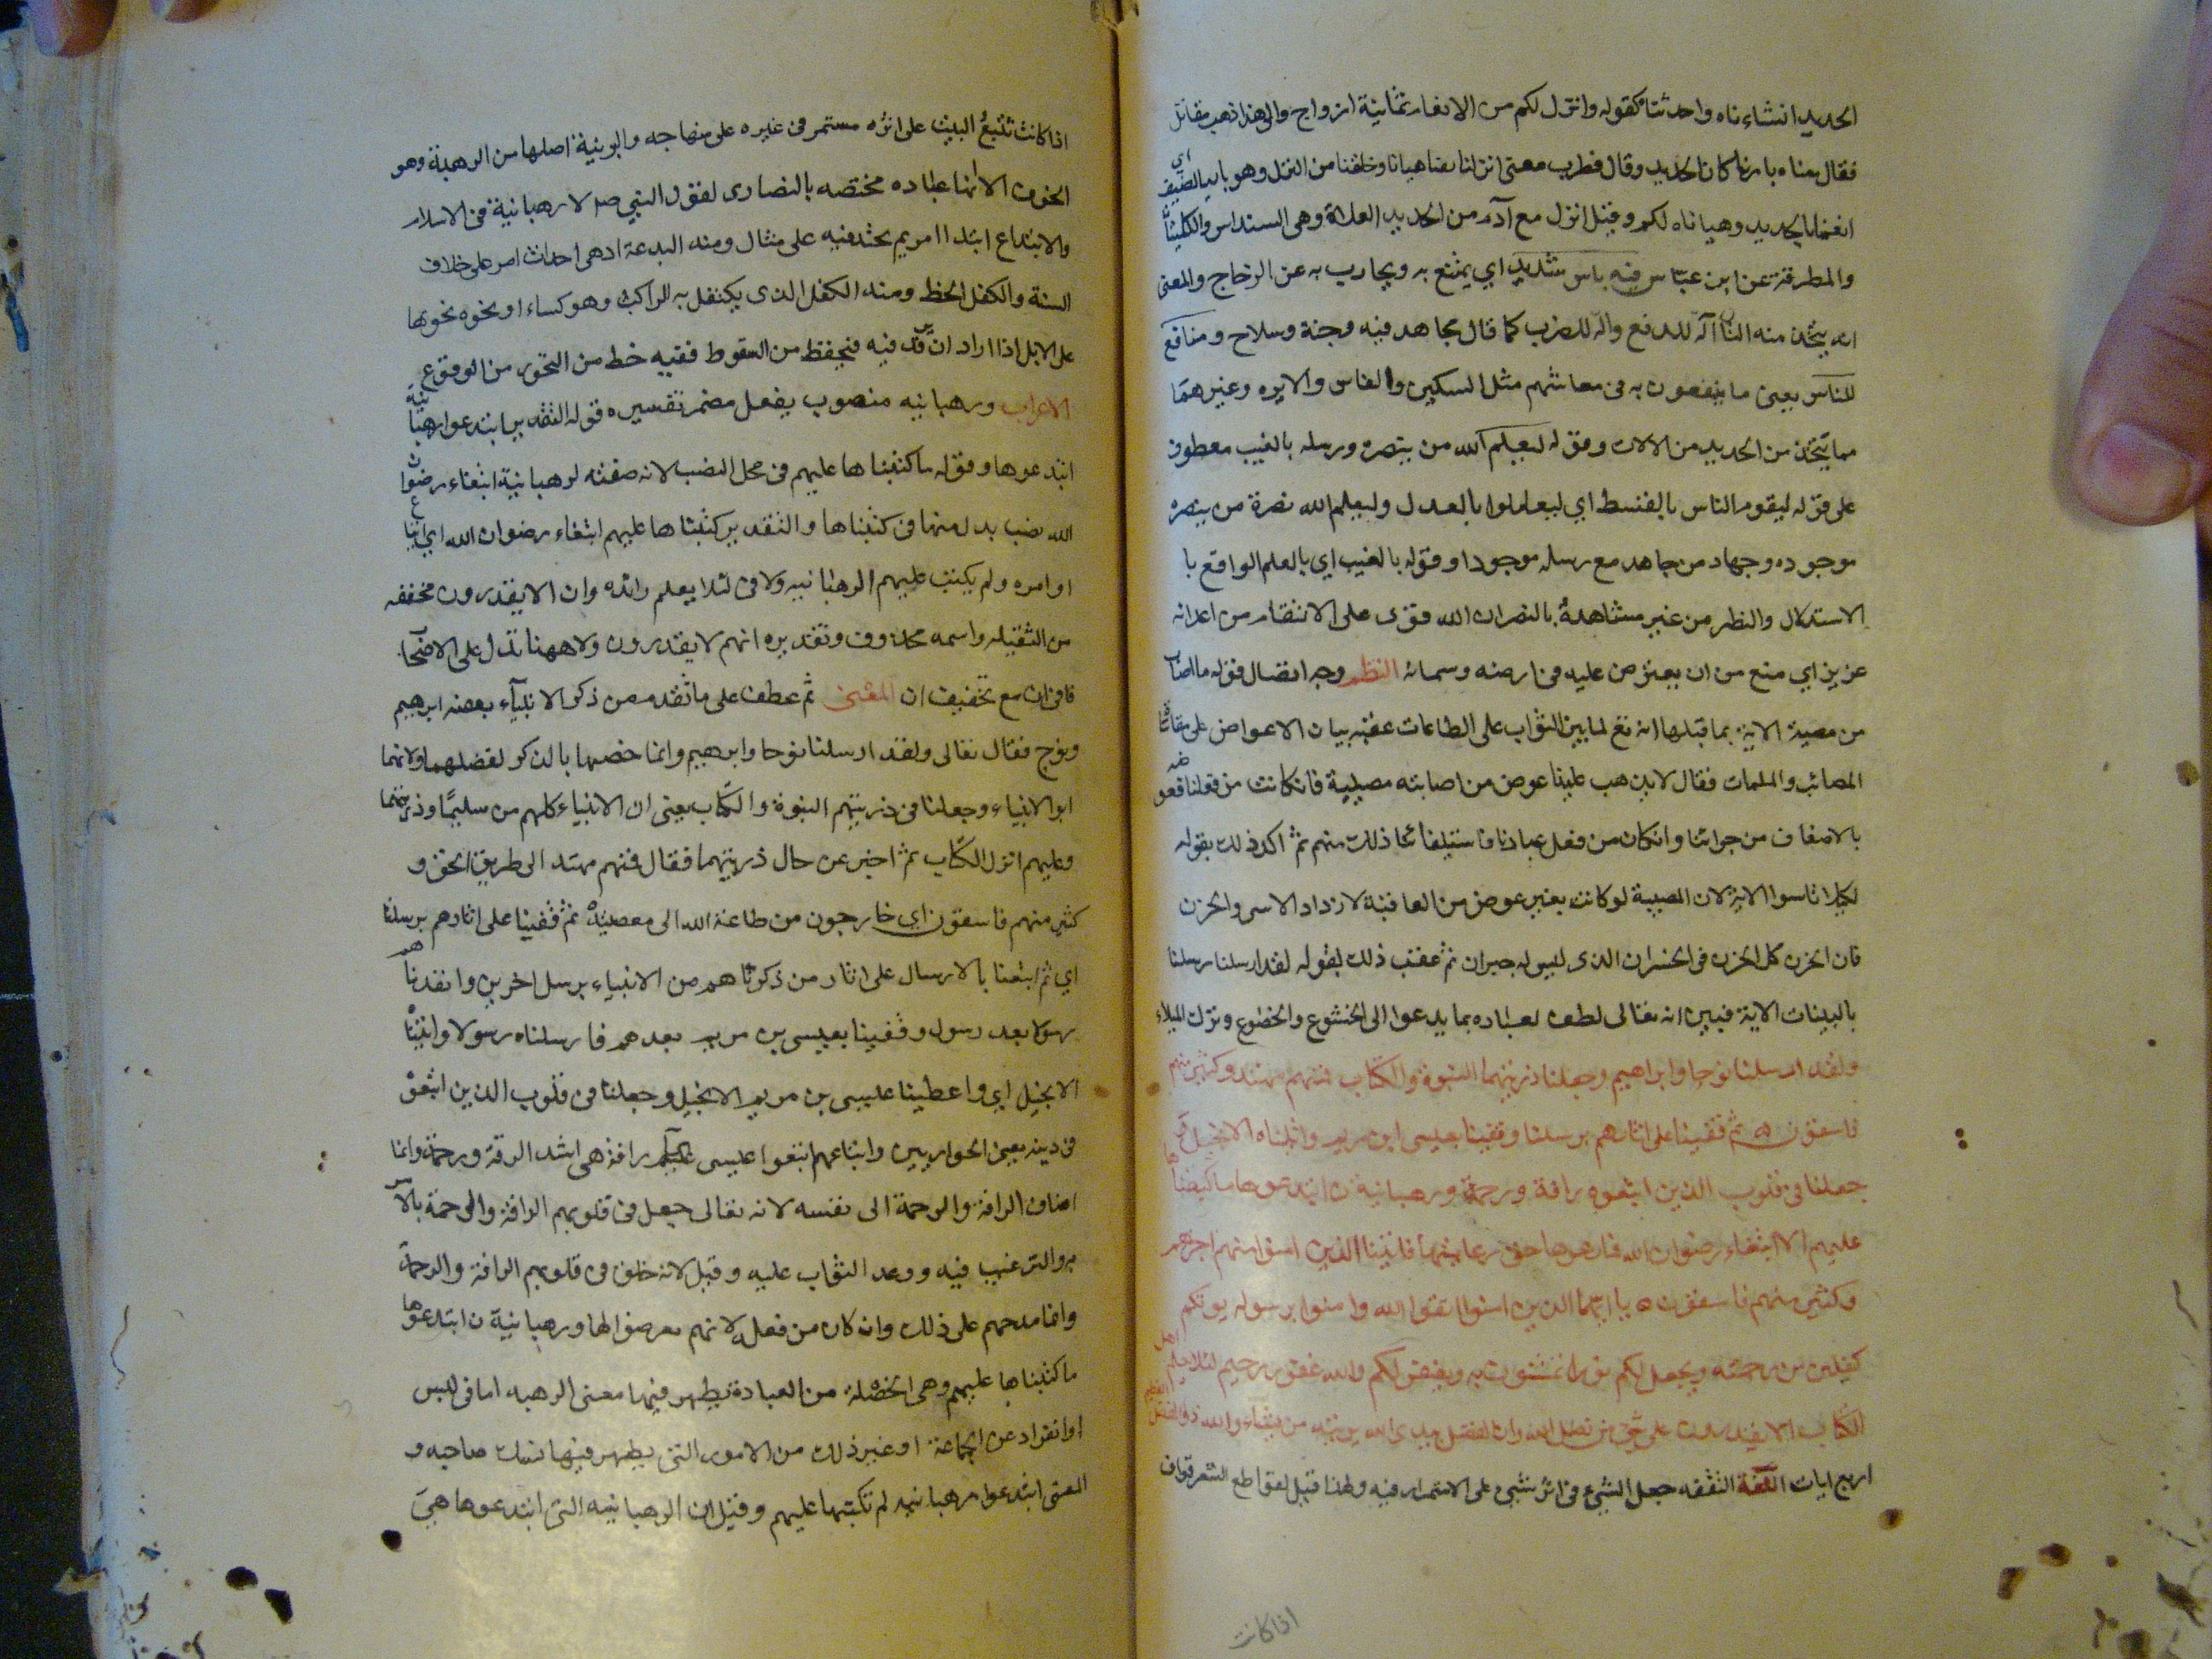 الحديد انشاءناه واحدثناه كقوله وانزل لكم من الانعام ثمانية ازواج والى هذا ذهب مقاتل
فقال معناه بامرنا كان الحديد وقال قطرب معنى انزلنا هنا هيانا وخلقنا من النزل وهو ما يهيا للضيف اي
انعمنا بالحديد وهياناه لكم وقيل انزل مع آدم من الحديد العلاة وهي السندان والكلبتان
والمطرقة عن ابن عباس فيه باس شديد اي يمتنع به ويحارب به عن الزجاج والمعنى
انه يتخذ منه التان آلة للدفع وآلة للضرب كما قال مجاهد فيه جنة وسلاح ومنافع
للناس يعني ما ينتفعون به في معاشهم مثل السكين والفاس والابره وغيرهما
مما يتخذ من الحديد من الالات وقوله ليعلم الله من ينصره ورسله بالغيب معطوف
على قوله ليقوم الناس بالقسط اي ليعاملوا بالعدل وليعلم الله نصرة من ينصره
موجوده وجهاد من جاهد مع رسله موجودا وقوله بالغيب اي بالعلم الواقع با
الاستدلال والنظر من غير مشاهدة بالنصر ان الله قوى على الانتقام من اعدائه
عزيز اي منع من ان يعترض عليه في ارضه وسمائه النظم وجه اتصال قوله ما اصاب
من مصيبة الاية بما قبلها انه تع لما بين الثواب على الطاعات عقبه بيان الاعواض على مقاساة
المصائب والملمات فقال لا يذهب علينا عوض من اصابته مصيبة فان كانت من فعلنا فعوضه
بالاضعاف من جرائنا وان كان من فعل عبادنا فاستيفائنا ذلك منهم ثم اكد ذلك بقوله
لكيلا تاسوا الاية لان المصيبة لو كانت بغير عوض من العاقبة لازداد الاسى والحزن
فان الحزن كل الحزن في الخسران الذي ليس له جبران ثم عقب ذلك بقوله لقد ارسلنا رسلنا
بالبينات الاية فبين انه تعالى لطف لعباده بما يدعوا الى الخشوع والخضوع ونزك الميلاء
ولقد ارسلنا نوحا وابراهيم وجعلنا ذريتهما النبوة والكتاب فمنهم مهتد وكثير منهم
فاسقون ه ثم قفينا على اثارهم برسلنا وقفينا بعيسى ابن مريم واتيناه الانجيل و
جعلنا في قلوب الذين اتبعوه رافة ورحمة ورهبانية ن ابتدعوها ما كتبناها
عليهم الا ابتغاء رضوان الله فما رعوها حق رعايتها فاتينا الذين امنوا منهم اجرهم
وكثير منهم فاسقون ه يا ايها الذين امنوا اتقوا الله وامنوا برسوله يوتكم
كفلين من رحمته ويجعل لكم نورا تمشون به ويغفر لكم والله غفور رحيم لئلا يعلم اهل
الكتاب الا يقدرون على شي من فضل الله وان الفضل بيد الله يوتيه من يشاء والله ذو الفضل العظيم
اربع ايات اللغة التقفيه جعل الشيء في اثر شيء على الاستمرار فيه ولهذا قيل لمقاطع الشعر قواف
اذا كانت
اذا كانت تتبع البيت على اثره مستمر في غيره على منهاجه والرهبانية اصلها من الرهبة وهو
الخوف الا انها عباده مختصه بالنصارى لقول النبي ص لا رهبانية في الاسلام
والابتداع ابتدا امر يم يحتد فيه على مثال ومنه البدعة اذ هي احداث امر على خلاف
السنة والكفل الحظ ومنه الكفل الذي يكتفل به الراكب وهو كساء او نحوه يحويها
على الابل اذا اراد ان يرقد فيه فيحفظ من السقوط ففيه خط من التحور من الوقوع
الاعراب ورهبانيه منصوب بفعل مضمر تفسيره قوله التقدير ابتدعوا رهبانية
ابتدعوها وقوله ما كتبناها عليهم في محل النصب لانه صفته لرهبانية ابتغاء رضوان
الله نصب بدل منها في كتبناها والتقدير كتبناها عليهم ابتغاء رضوان الله اي اتباع
اوامره ولم يكتب عليهم الرهبانيه ولا في لئلا يعلم زائده وان الا يقدرون مخففه
من الثقيله واسمه محذوف وتقديره انهم لا يقدرون ولا ههنا تدل على الاضمار
قافي ان مع تخفيف ان المعنى ثم عطف على ما تقدم من ذكر الانبياء بقصة ابرهيم
ونوح فقال تعالى ولقد ارسلنا نوحا وابرهيم وانما خصهما بالذكر لفضلهما ولانهما
ابو الانبياء وجعلنا في ذريتهم النبوة والكتاب يعني ان الانبياء كلهم من سليهما وذريتهما
وعليهم انزل الكتاب ثم اخبر عن حال ذريتهما فقال فمنهم مهتد الى طريق الحق و
كثير منهم فاسقون اي خارجون من طاعة الله الى معصيته ثم قفينا على اثارهم برسلنا
اي ثم اتبعنا بالارسال على اثار من ذكرناهم من الانبياء برسل اخرين وانفذناهم
رسولا بعد رسول وقفينا بعيسى بن مريم بعدهم فارسلناه رسولا واتيناه
الانجيل اي واعطينا عيسى بن مريم الانجيل وجعلنا في قلوب الذين اتبعوه
في دينه يعني الحواريين واتباعهم اتبعوا عيسى رافة هي اشد الرقة ورحمة وانما
اضاف الرافة والرحمة الى نفسه لانه تعالى جعل في قلوبهم الرافة والرحمة بالامر
به والترغيب فيه ووعد الثواب عليه وقيل لانه خلق في قلوبهم الرافة والرحمة
وانما مدحهم على ذلك وان كان من فعله لانهم تعرضوا لها ورهبانية ن ابتدعوها
ما كتبناها عليهم وهي الخصلة من العبادة يظهر فيها معنى الرهبه اما في لبس
او انفراد عن الجماعة او غير ذلك من الامور التي يظهر فيها نسك صاحبه و
المعنى ابتدعوا رهبانيه لم نكتبها عليهم وقيل ان الرهبانيه التي ابتدعوها هي